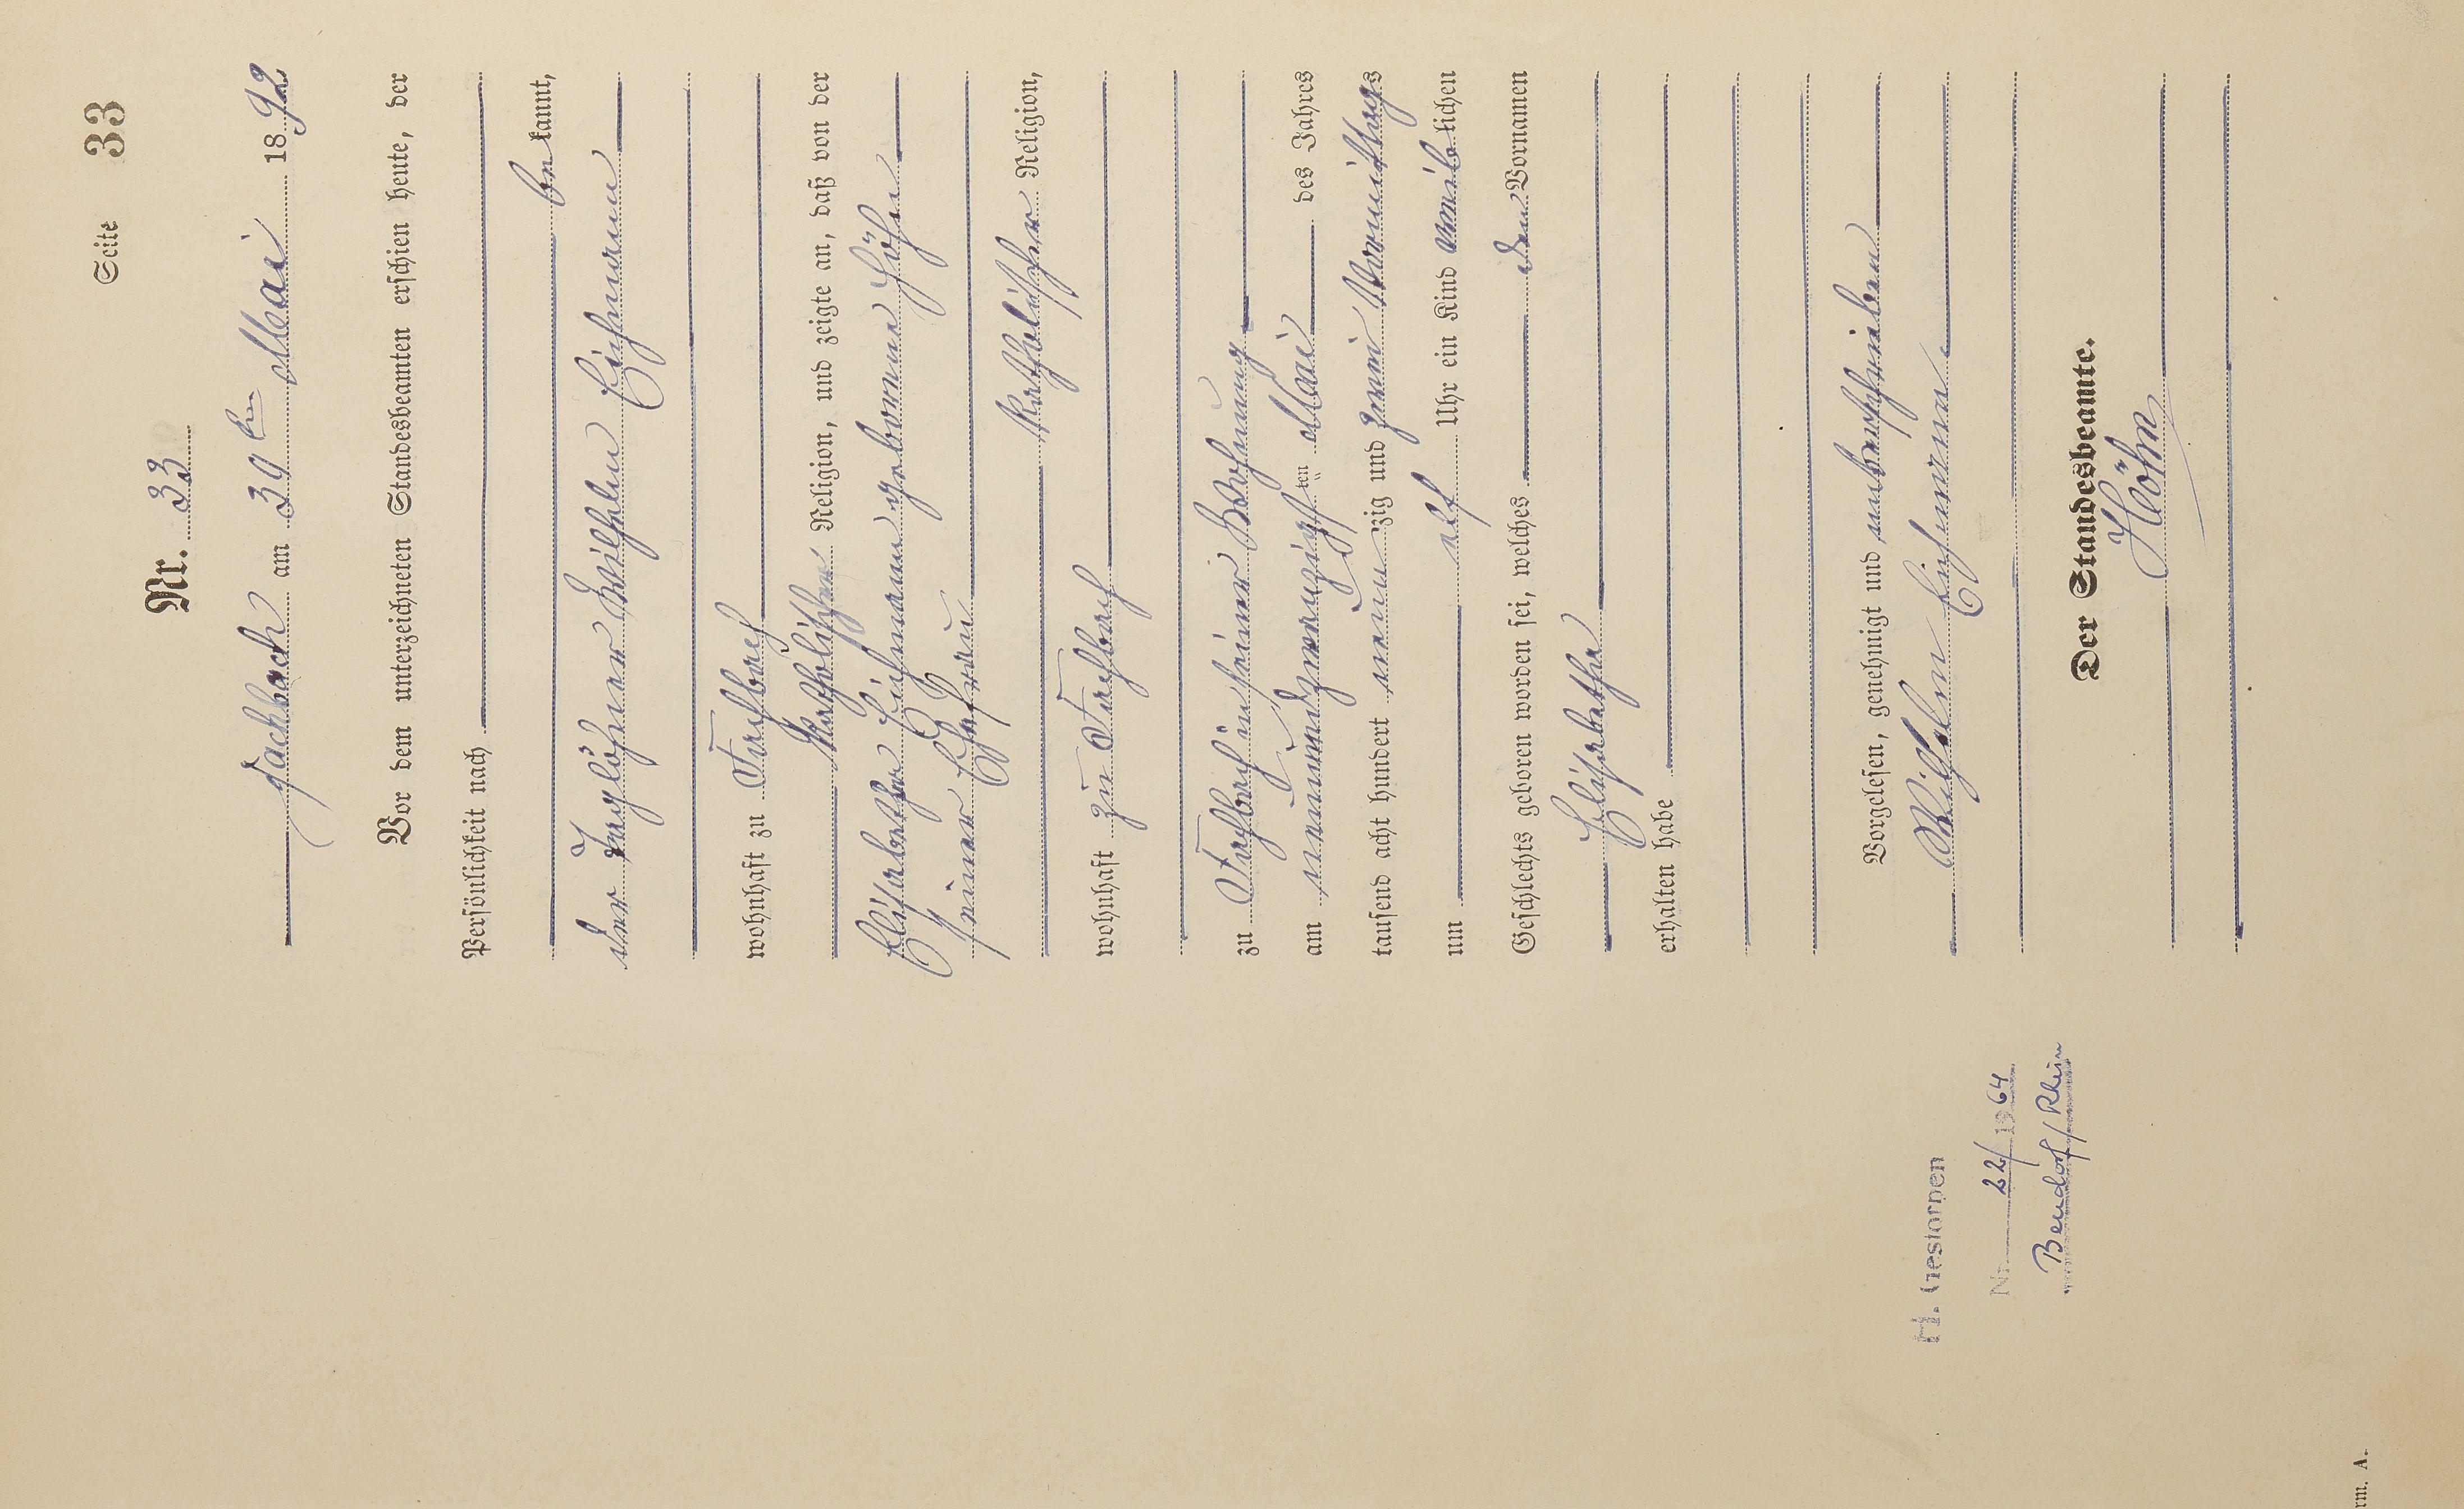 Seite 33
Nr. 33
Fachbach am 30ten Mai 1892
Vor dem unterzeichneten Standesbeamten erschien heute, der
Persönlichkeit nach
bekannt,
der Taglöhner Wilhelm Eichmann
wohnhaft zu Fachbach
katholischer Religion, und zeigte an, daß von der
Elisabetha Eichmann geborenen Höhn
seiner Ehefrau
katholischer Religion,
wohnhaft zu Fachbach
zu Fachbach in seiner Wohnung
am neunundzwanzigsten Mai des Jahres
tausend acht hundert neunzig und zwei Vormittags
um elf Uhr ein Kind weiblichen
Geschlechts geboren worden sei, welches den Vornamen
Elisabetha
erhalten habe
Vorgelesen, genehmigt und unterschrieben
Wilhelm Eichmann
Der Standesbeamte.
Höhn
H. Gestorben
Nr. 22/1964
Bendorf/Rhein
rm. A.